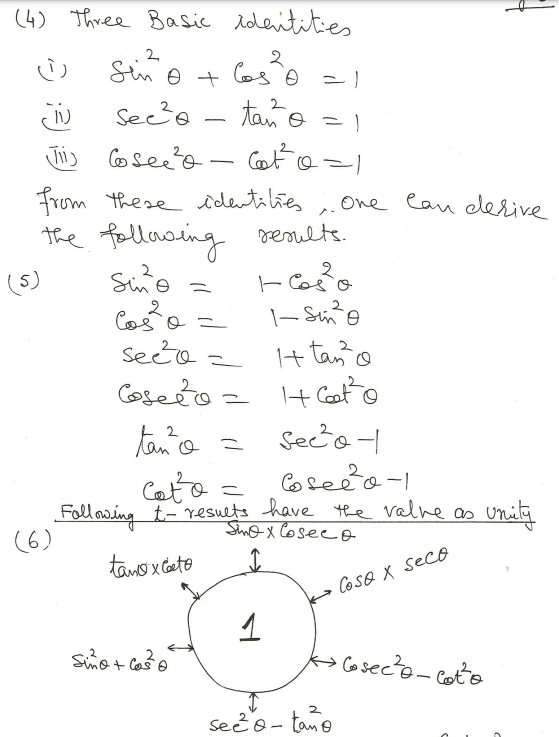 (4) Three Basic identities
(i) Sin²θ + Cos²θ = 1
(ii) sec²θ – tan²θ = 1
(iii) Cosec²θ – Cot²θ = 1
From these identities, one can derive
the following results.
(5) Sin²θ = 1 – Cos²θ
Cos²θ = 1 – Sin²θ
sec²θ = 1 + tan²θ
Cosec²θ = 1 + Cot²θ
tan²θ = Sec²θ – 1
Cot²θ = Cosec²θ – 1
Following t-results have the value as unity
(6) Sinθ × Cosec θ
tanθ × Cotθ
Cosθ × secθ
1
Sin²θ + Cos²θ
Cosec²θ – Cot²θ
sec²θ – tan²θ